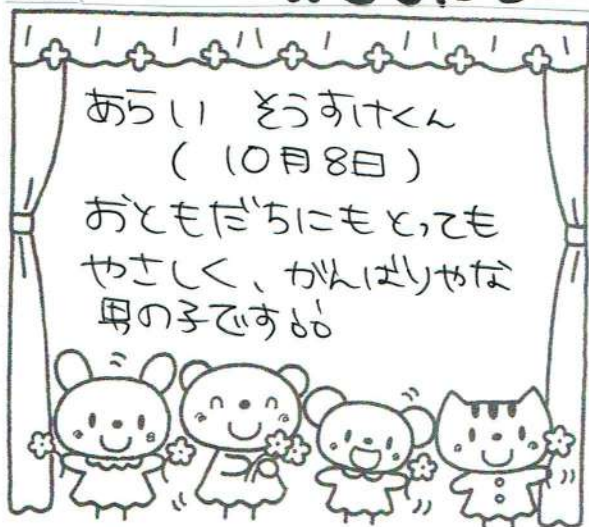 あらい そうすけくん
(10月8日)
おともだちにもとっても
やさしく、がんばりやな
男の子です